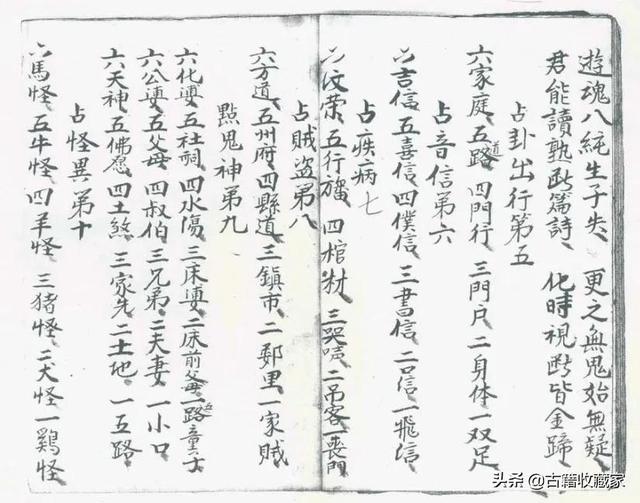 遊魂八純生子失、更之無鬼始無疑、
君能讀熟断篇詩、化時視断皆金蹄、
占卦出行第五
六家庭、五道路 四門行 三門户 二身体 一双足
占音信第六
六吉信 五喜信 四僕信 三書信 二口信 一飛信
占疾病七
六 荣、五行 四棺材 三哭声 二吊客 一丧門
占賊盗第八
六方道、五州府、四縣道、三鎮市、二鄰里 一家賊
點鬼神第九
六化婆 五社祠 四水傷 三床婆 二床前 一路童子
六公婆 五父母 四叔伯 三兄弟 二夫妻 一小口
六天神 五佛愿 四土煞 三家先 二土地 一五路
占怪異第十
六馬怪 五牛怪 四羊怪 三猪怪 二犬怪 一鷄怪
头条 @古籍收藏家